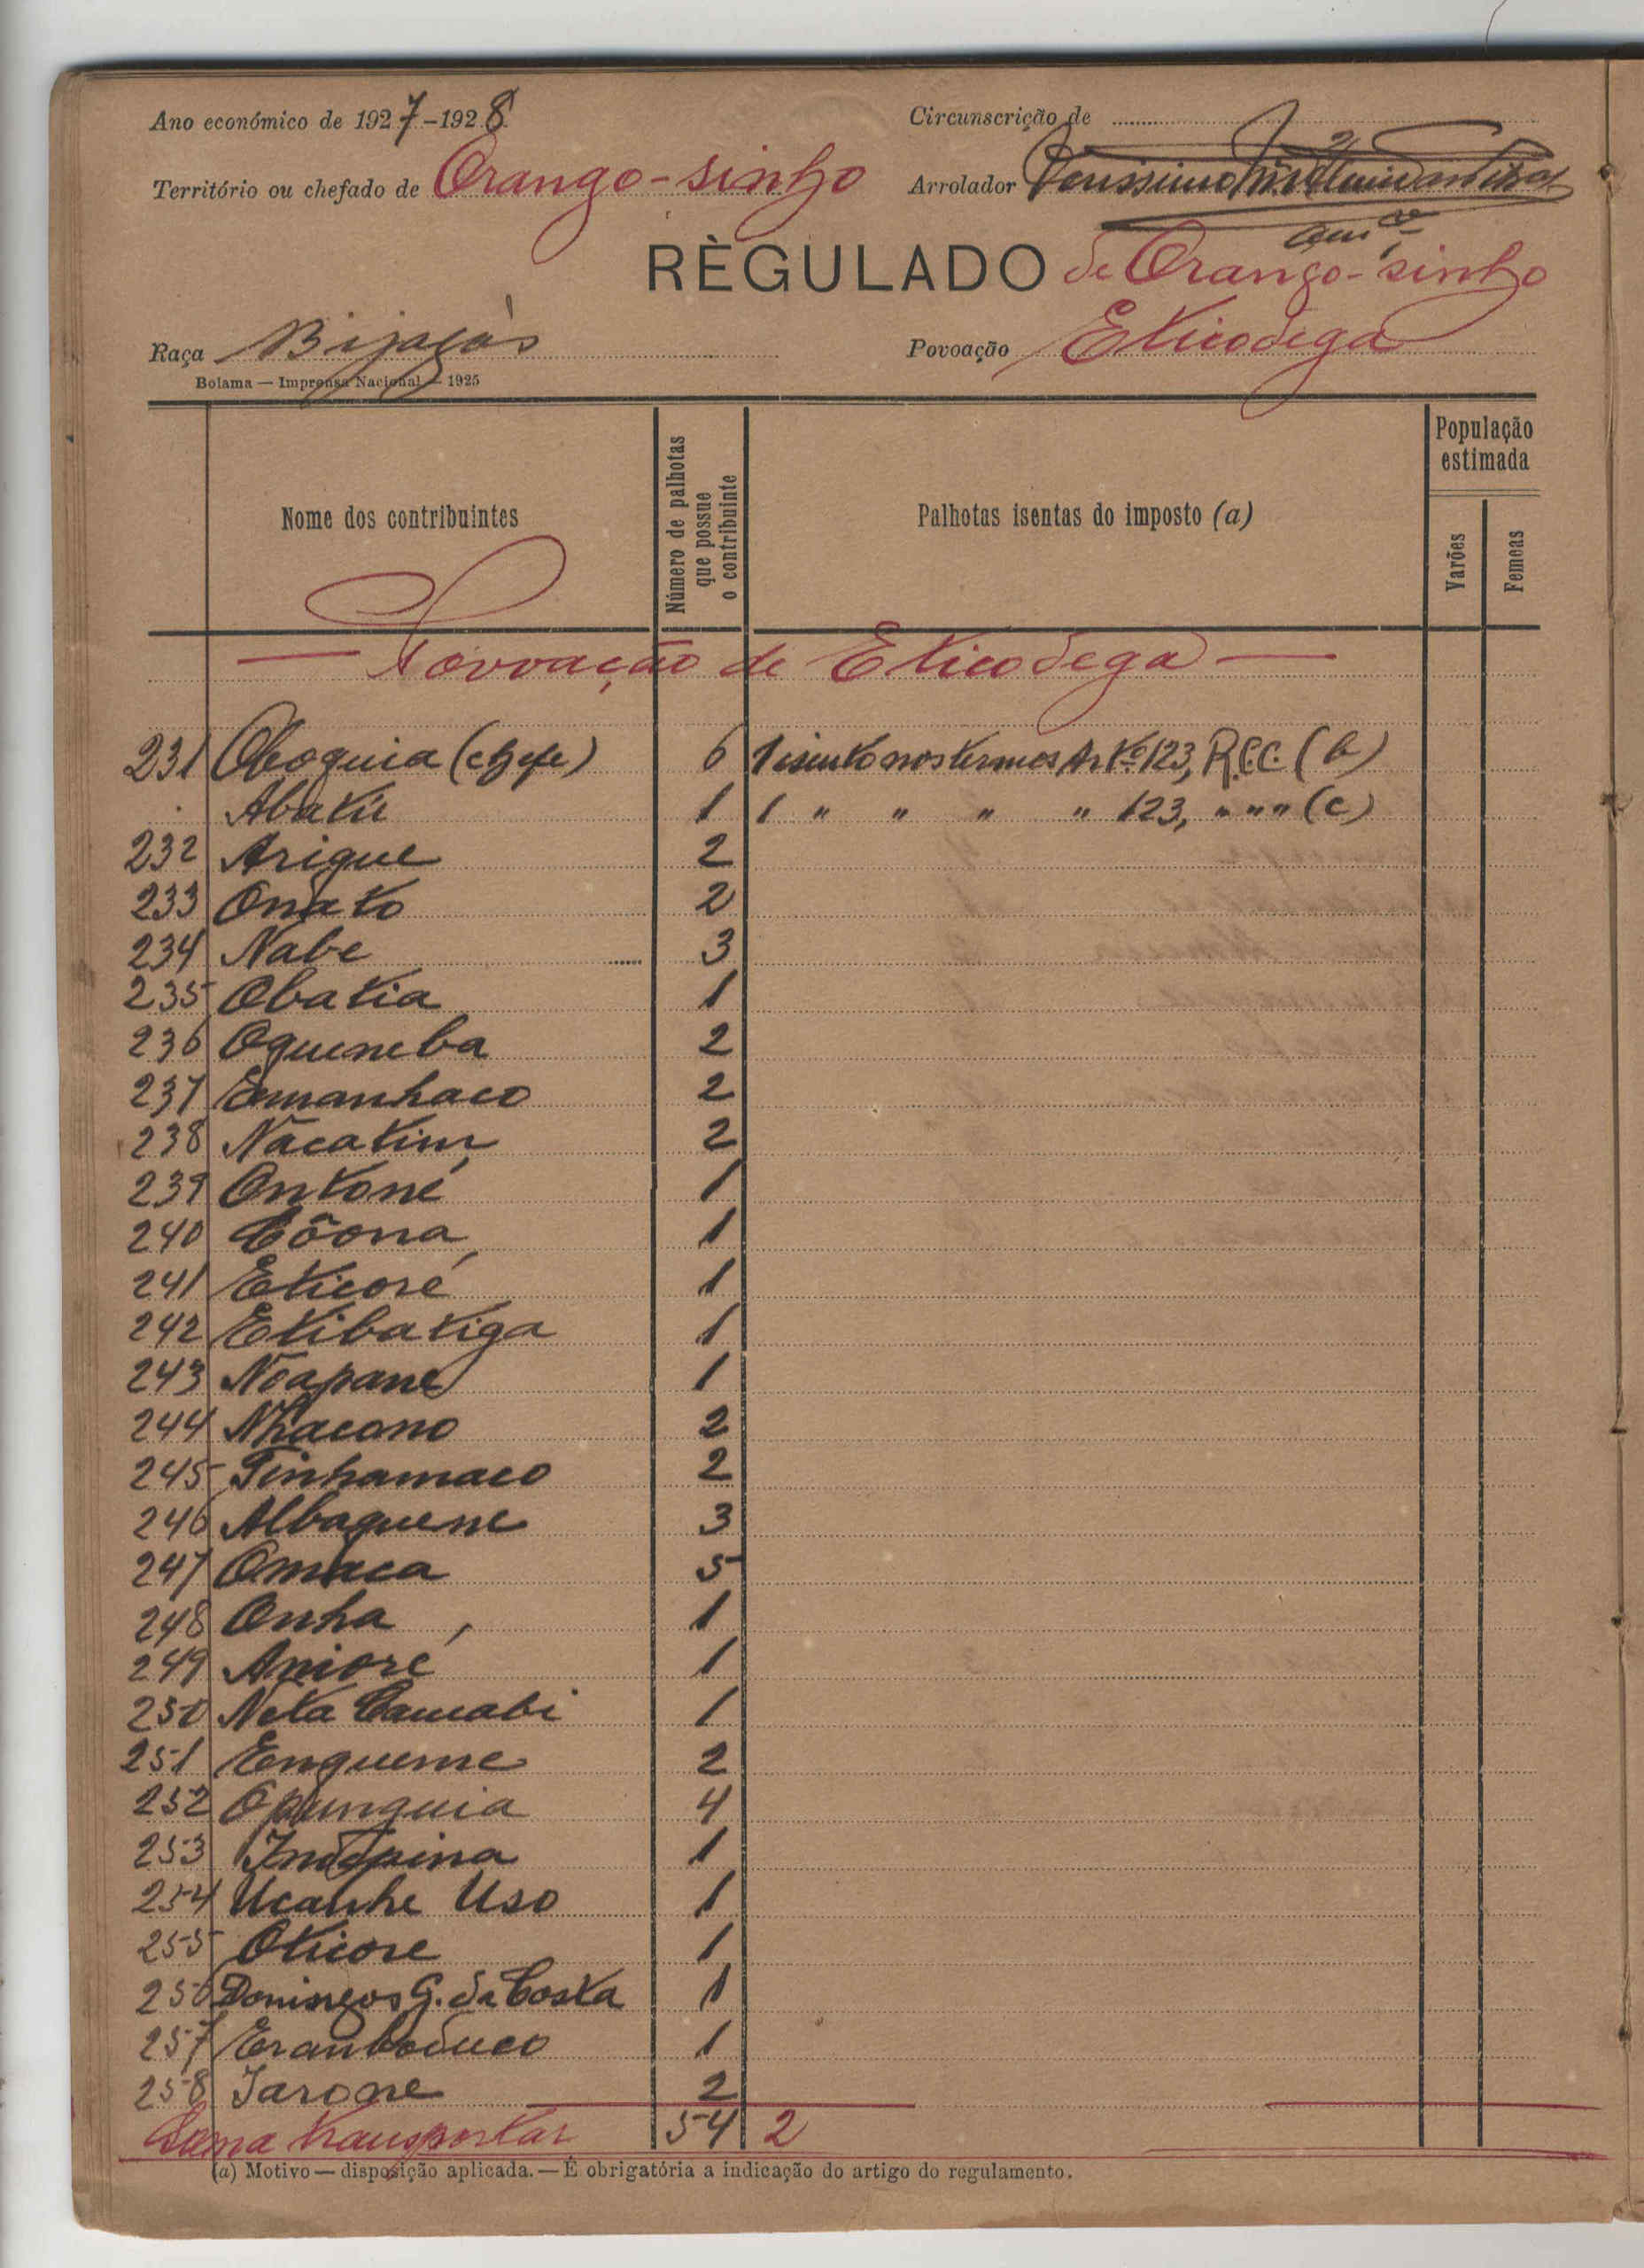 Ano económico de 1927-1928
Circunscrição de
Território ou chefado de Orango-sinho
Arrolador
RÈGULADO de Orango-sinho
Raça Bijagós
Povoação Eticodega
Bolama — Imprensa Nacional — 1925
Nome dos contribuintes
Número de palhotas que possue o contribuinte
Palhotas isentas do imposto (a)
População estimada
Varões
Femeas
— Povoação de Eticodega —
231 Oboquia (chefe) 6 1 isento nos termos Artº 123, R.C.C. (b)
Abatú 1 1 " " " " 123, " " " (c)
232 Arigue 2
233 Onato 2
234 Nabe 3
235 Obatia 1
236 Oqueneba 2
237 Emanhaco 2
238 Nacatim 2
239 Ontoné 1
240 Côona 1
241 Eticoré 1
242 Etibatiga 1
243 Noapane 1
244 Nhacono 2
245 Tinhamaco 2
246 Albaquene 3
247 Omaca 5
248 Onha 1
249 Anioré 1
250 Neta Camabi 1
251 Enqueme 2
252 Opunquia 4
253 1
254 Ucanhe Uso 1
255 Oticore 1
256 Domingos G. da Costa 1
257 Eranboduco 1
258 Jarone 2
Soma transportar 54 2
(a) Motivo — disposição aplicada. — É obrigatória a indicação do artigo do regulamento.